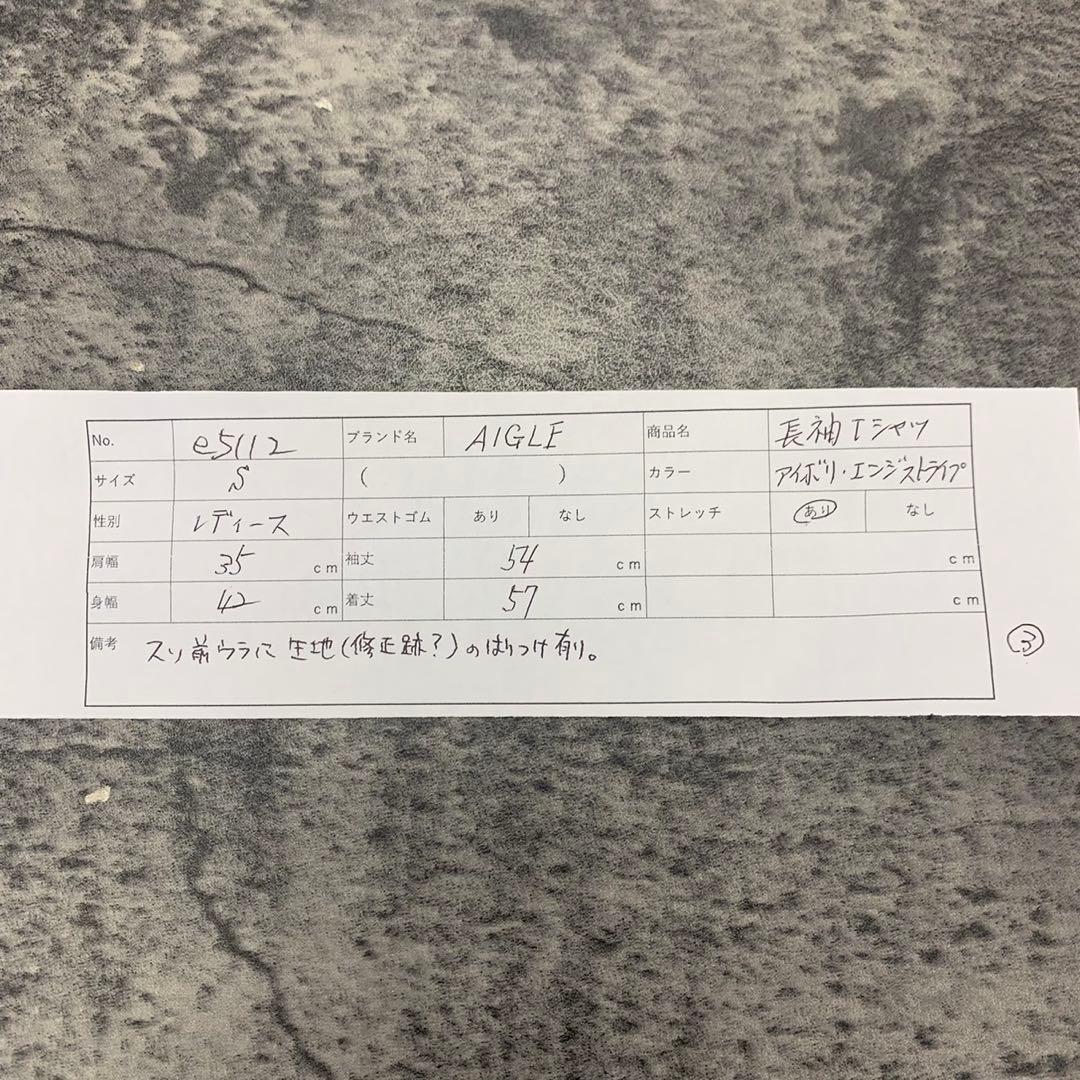 No. e5112 ブランド名 AIGLE 商品名 長袖Tシャツ
サイズ S ( ) カラー アイボリ・エンジストライプ
性別 レディース ウエストゴム あり なし ストレッチ あり なし
肩幅 35 cm 袖丈 54 cm cm
身幅 42 cm 着丈 57 cm cm
備考 スソ前ウラに生地(修正跡?)のはりつけ有り。
③